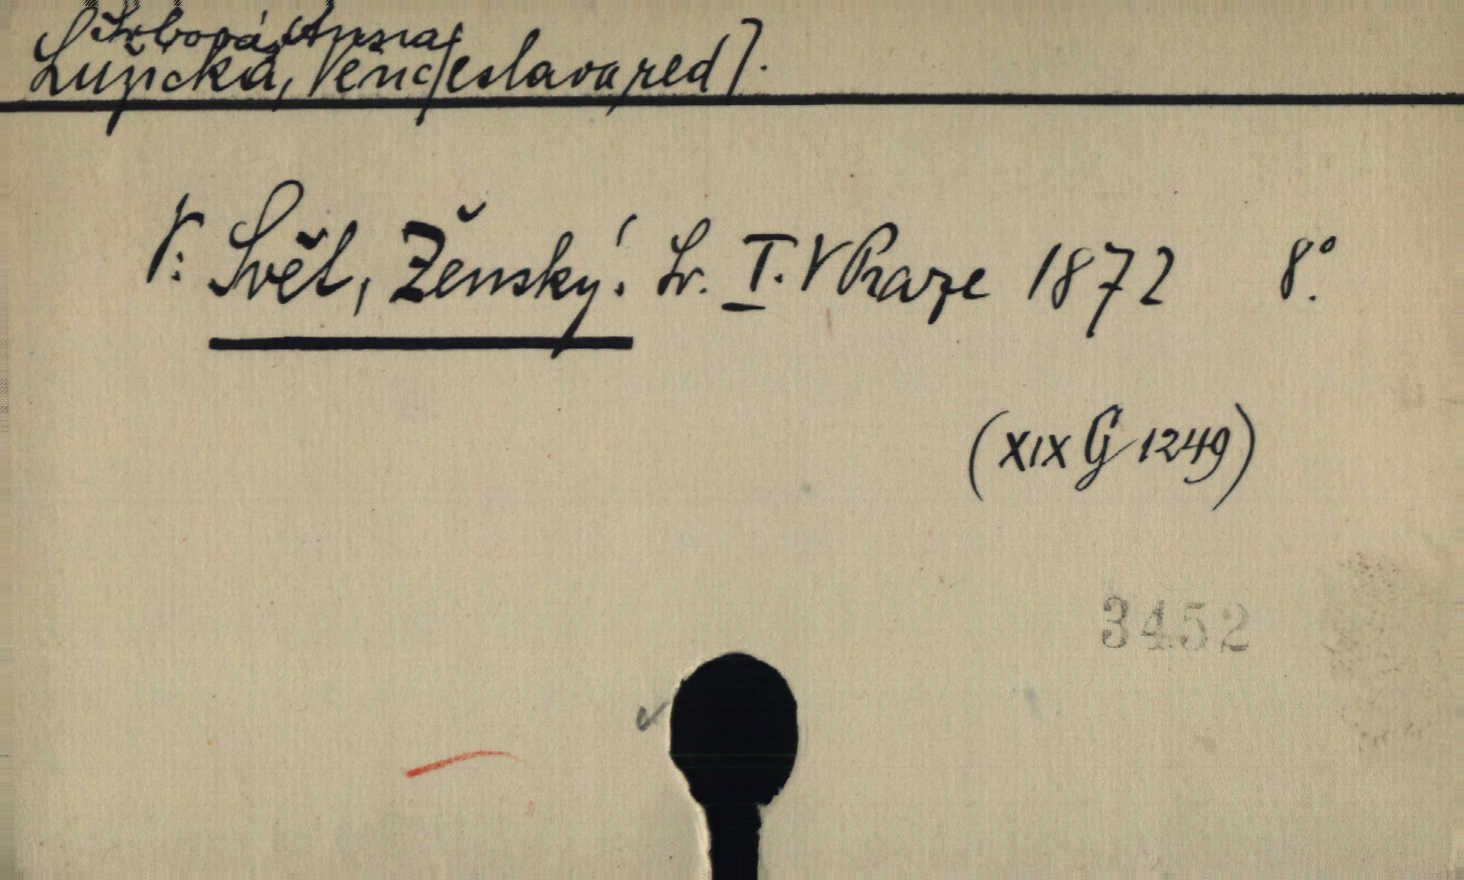 Srbová, Anna
Lužická, Věnceslava, red].
V: Svět, Ženský. Sv. I. V Praze 1872 8°.
(XIX G 1249)
3452